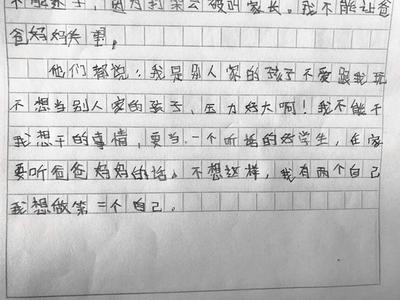 不能还手，因为打架会被叫家长。我不能让爸
爸妈妈失望。
他们都说：我是别人家的孩子不爱跟我玩
不想当别人家的孩子，压力好大啊！我不能干
我想干的事情，要当一个听话的好学生，在家
要听爸爸妈妈的话。不想这样，我有两个自己
我想做第二个自己。